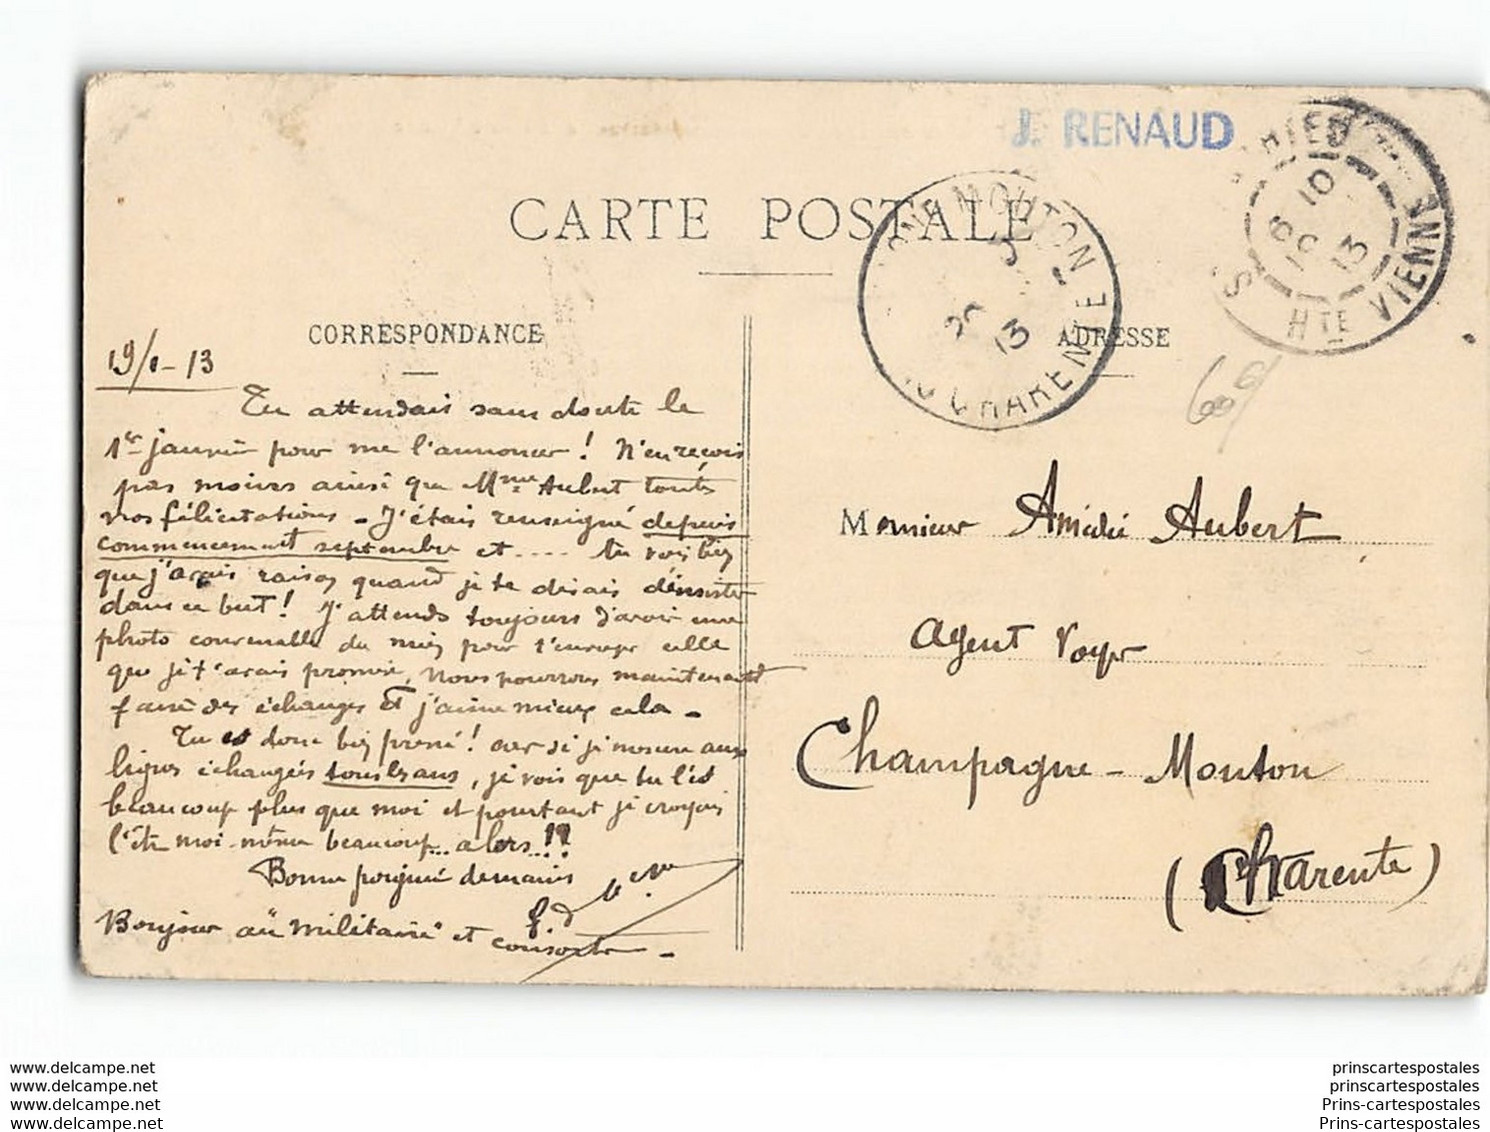 J. RENAUD
CARTE POSTALE
CORRESPONDANCE
ADRESSE
MOUTON
20
13
CHARENTE
10
13
Hte VIENNE
19/1-13
Tu attendais sans doute le
1er janvier pour me l'annoncer ! N'en reçois
pas moins ainsi que Mme Aubert toutes
nos félicitations - J'étais renseigné depuis
commencement septembre et .... tu vois bien
que j'avais raison quand je te disais d'insister
dans ce but ! J'attends toujours d'avoir une
photo convenable du mien pour t'envoyer celle
que je t'avais promise, nous pourrons maintenant
faire des échanges et j'aime mieux cela -
Tu es donc bien pressé ! car si je mesure aux
lignes échangées tous les ans, je vois que tu l'es
beaucoup plus que moi et pourtant je croyais
l'être moi-même beaucoup... alors !!
Bonne poignée de mains
Bonjour au "militaire" et consorts -
Monsieur Amédée Aubert
agent voyer
Champagne-Mouton
(Charente)
www.delcampe.net
www.delcampe.net
www.delcampe.net
www.delcampe.net
prinscartespostales
prinscartespostales
Prins-cartespostales
Prins-cartespostales